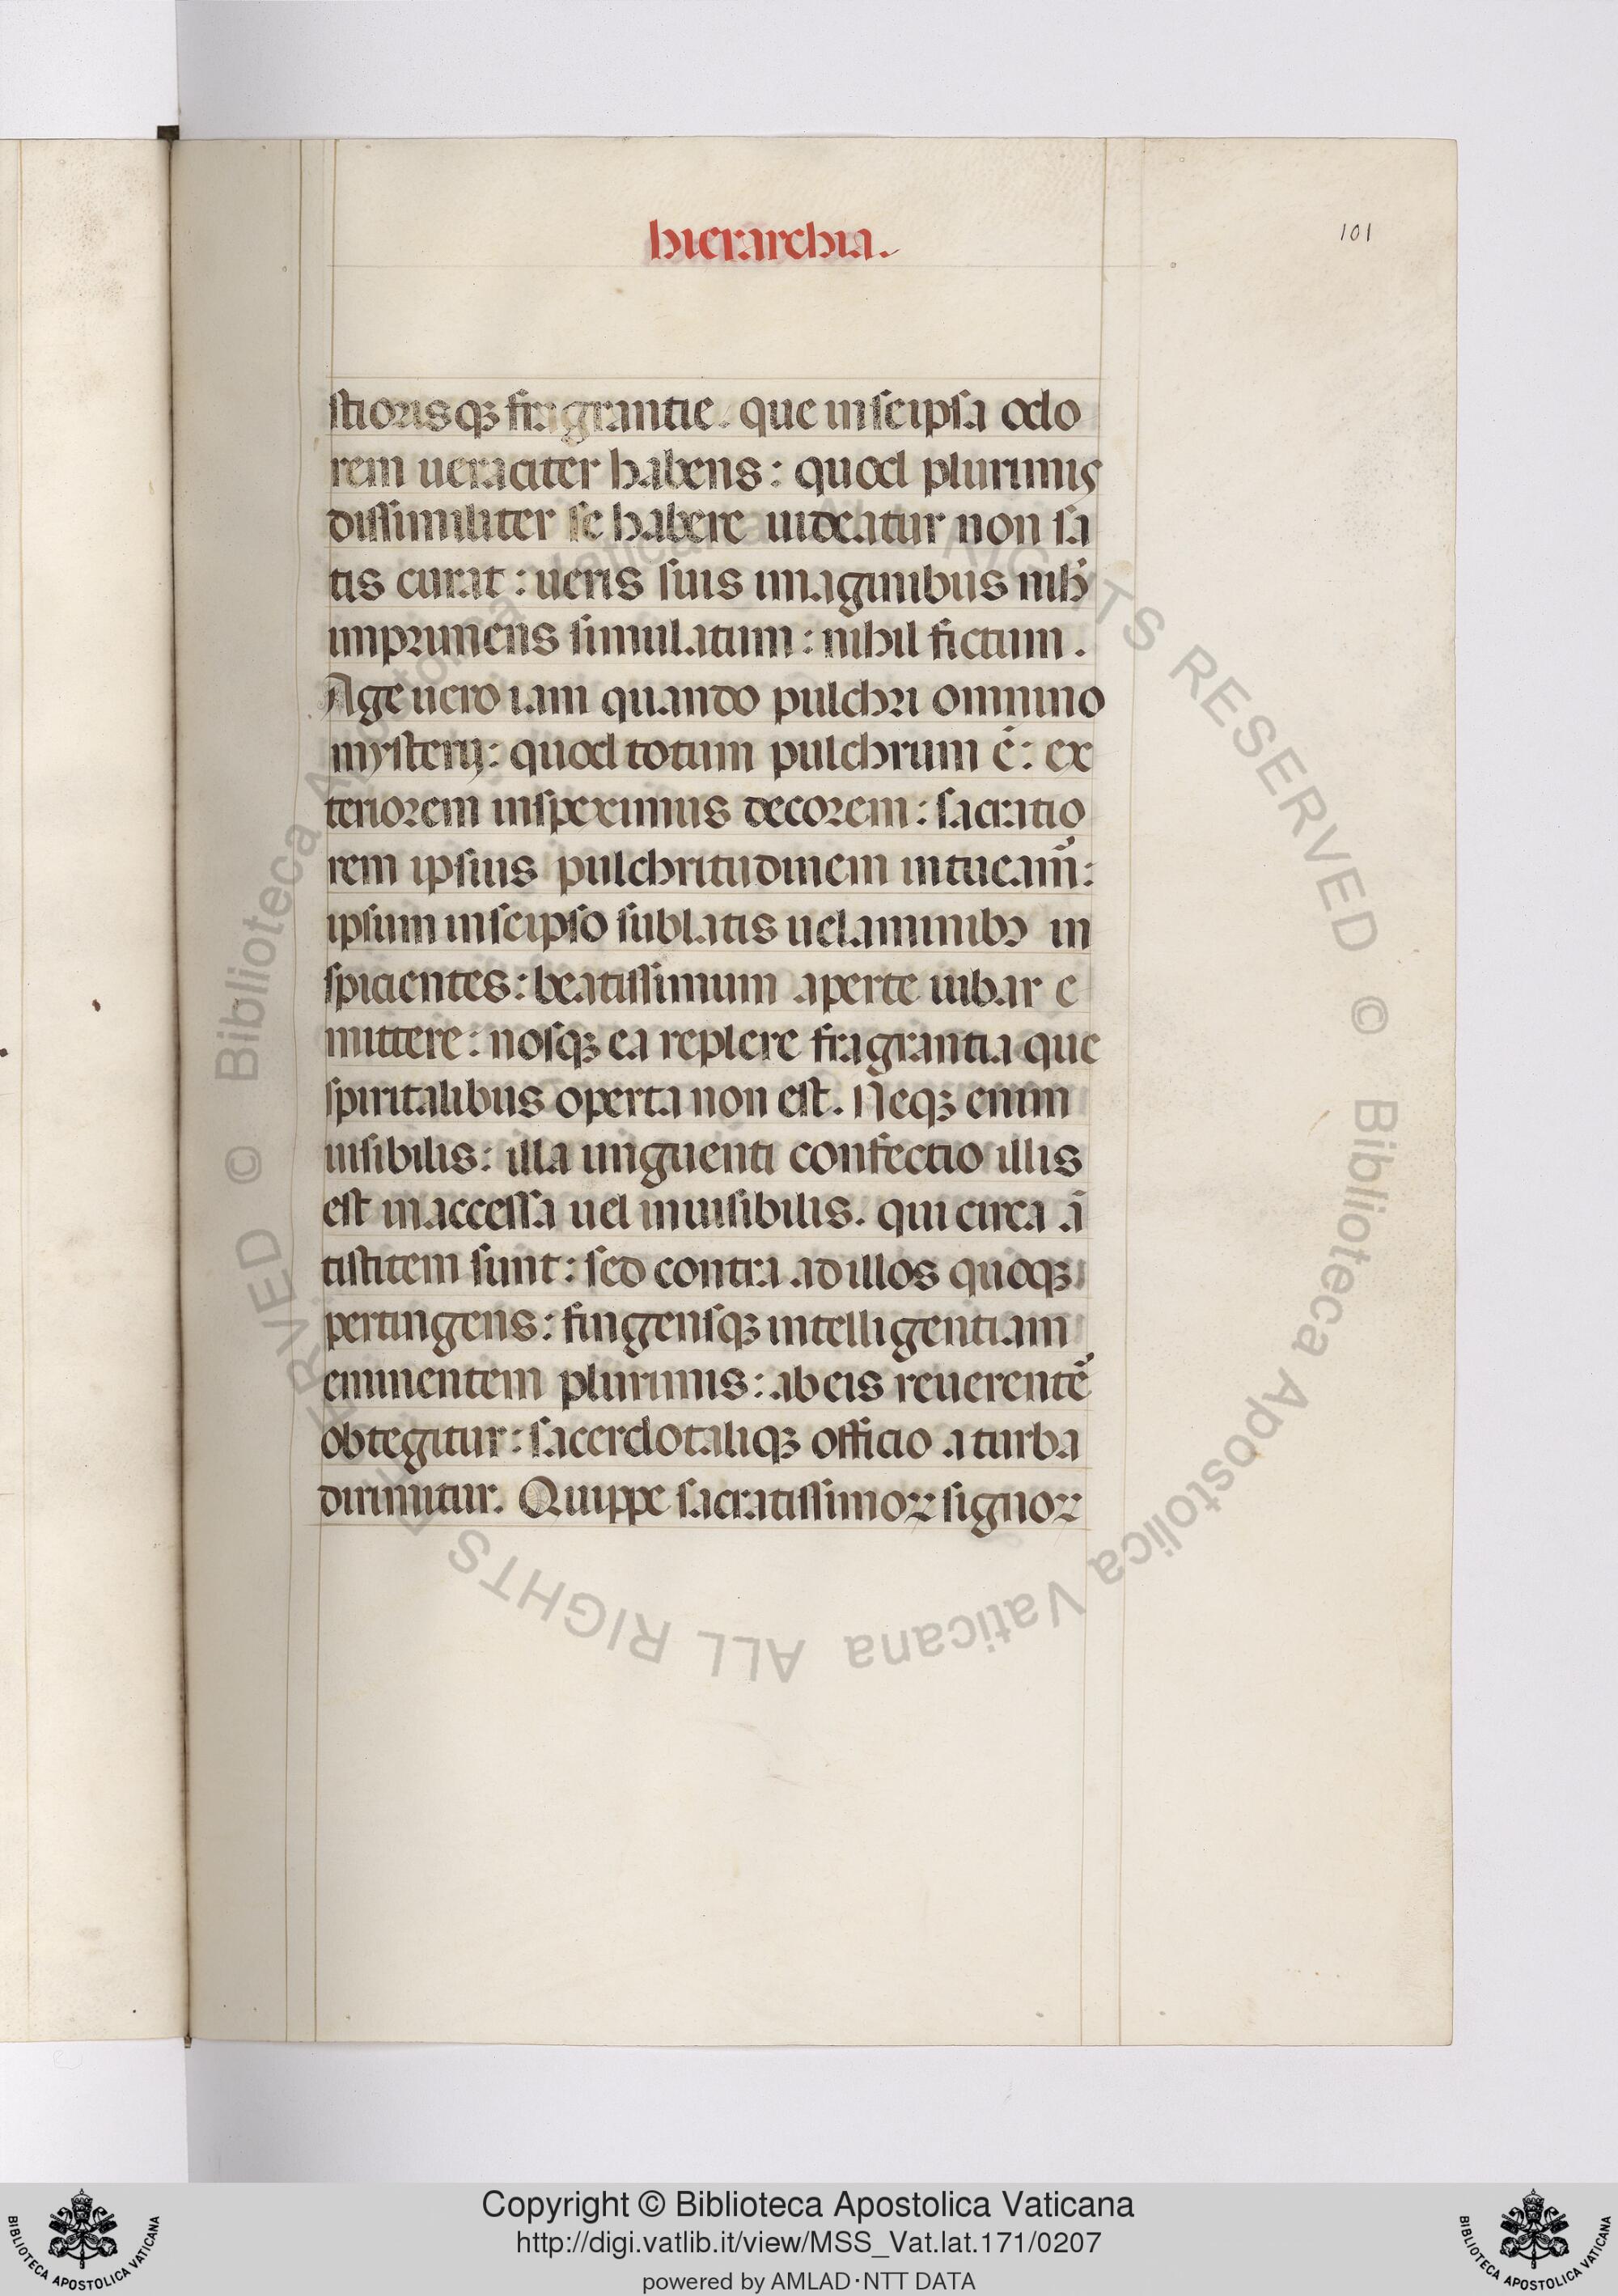 hierarchia.
101
stiorisqꝫ fragrantie. que inseipsa odo
rem ueraciter habens: quod plurimis
dissimiliter se habere uideatur non sa
tis curat: ueris suis imaginibus nih̄
imprimens simulatum: nihil fictum.
Age uero iam quando pulchri omnino
mysterij: quod totum pulchrum ē: ex
teriorem inspeximus decorem: sacratio
rem ipsius pulchritudinem intueam᷑:
ipsum inseipso sublatis uelaminibꝫ in
spicientes: beatissimum aperte iubar e
mittere: nosqꝫ ea replere fragrantia que
spiritalibus operta non est. Neqꝫ enim
uisibilis: illa unguenti confectio illis
est inaccessa uel inuisibilis. qui circa ā
tistitem sunt: sed contra ad illos quoqꝫ
pertingens: fingensqꝫ intelligentiam
eminentem plurimis: ab eis reuerent᷑
obtegitur: sacerdotaliqꝫ officio a turba
dirimitur. Quippe sacratissimoꝝ signoꝝ
© Biblioteca Apostolica Vaticana ALL RIGHTS RESERVED © Biblioteca Apostolica Vaticana ALL RIGHTS RESERVED
Copyright © Biblioteca Apostolica Vaticana
http://digi.vatlib.it/view/MSS_Vat.lat.171/0207
powered by AMLAD·NTT DATA
BIBLIOTECA APOSTOLICA VATICANA
BIBLIOTECA APOSTOLICA VATICANA